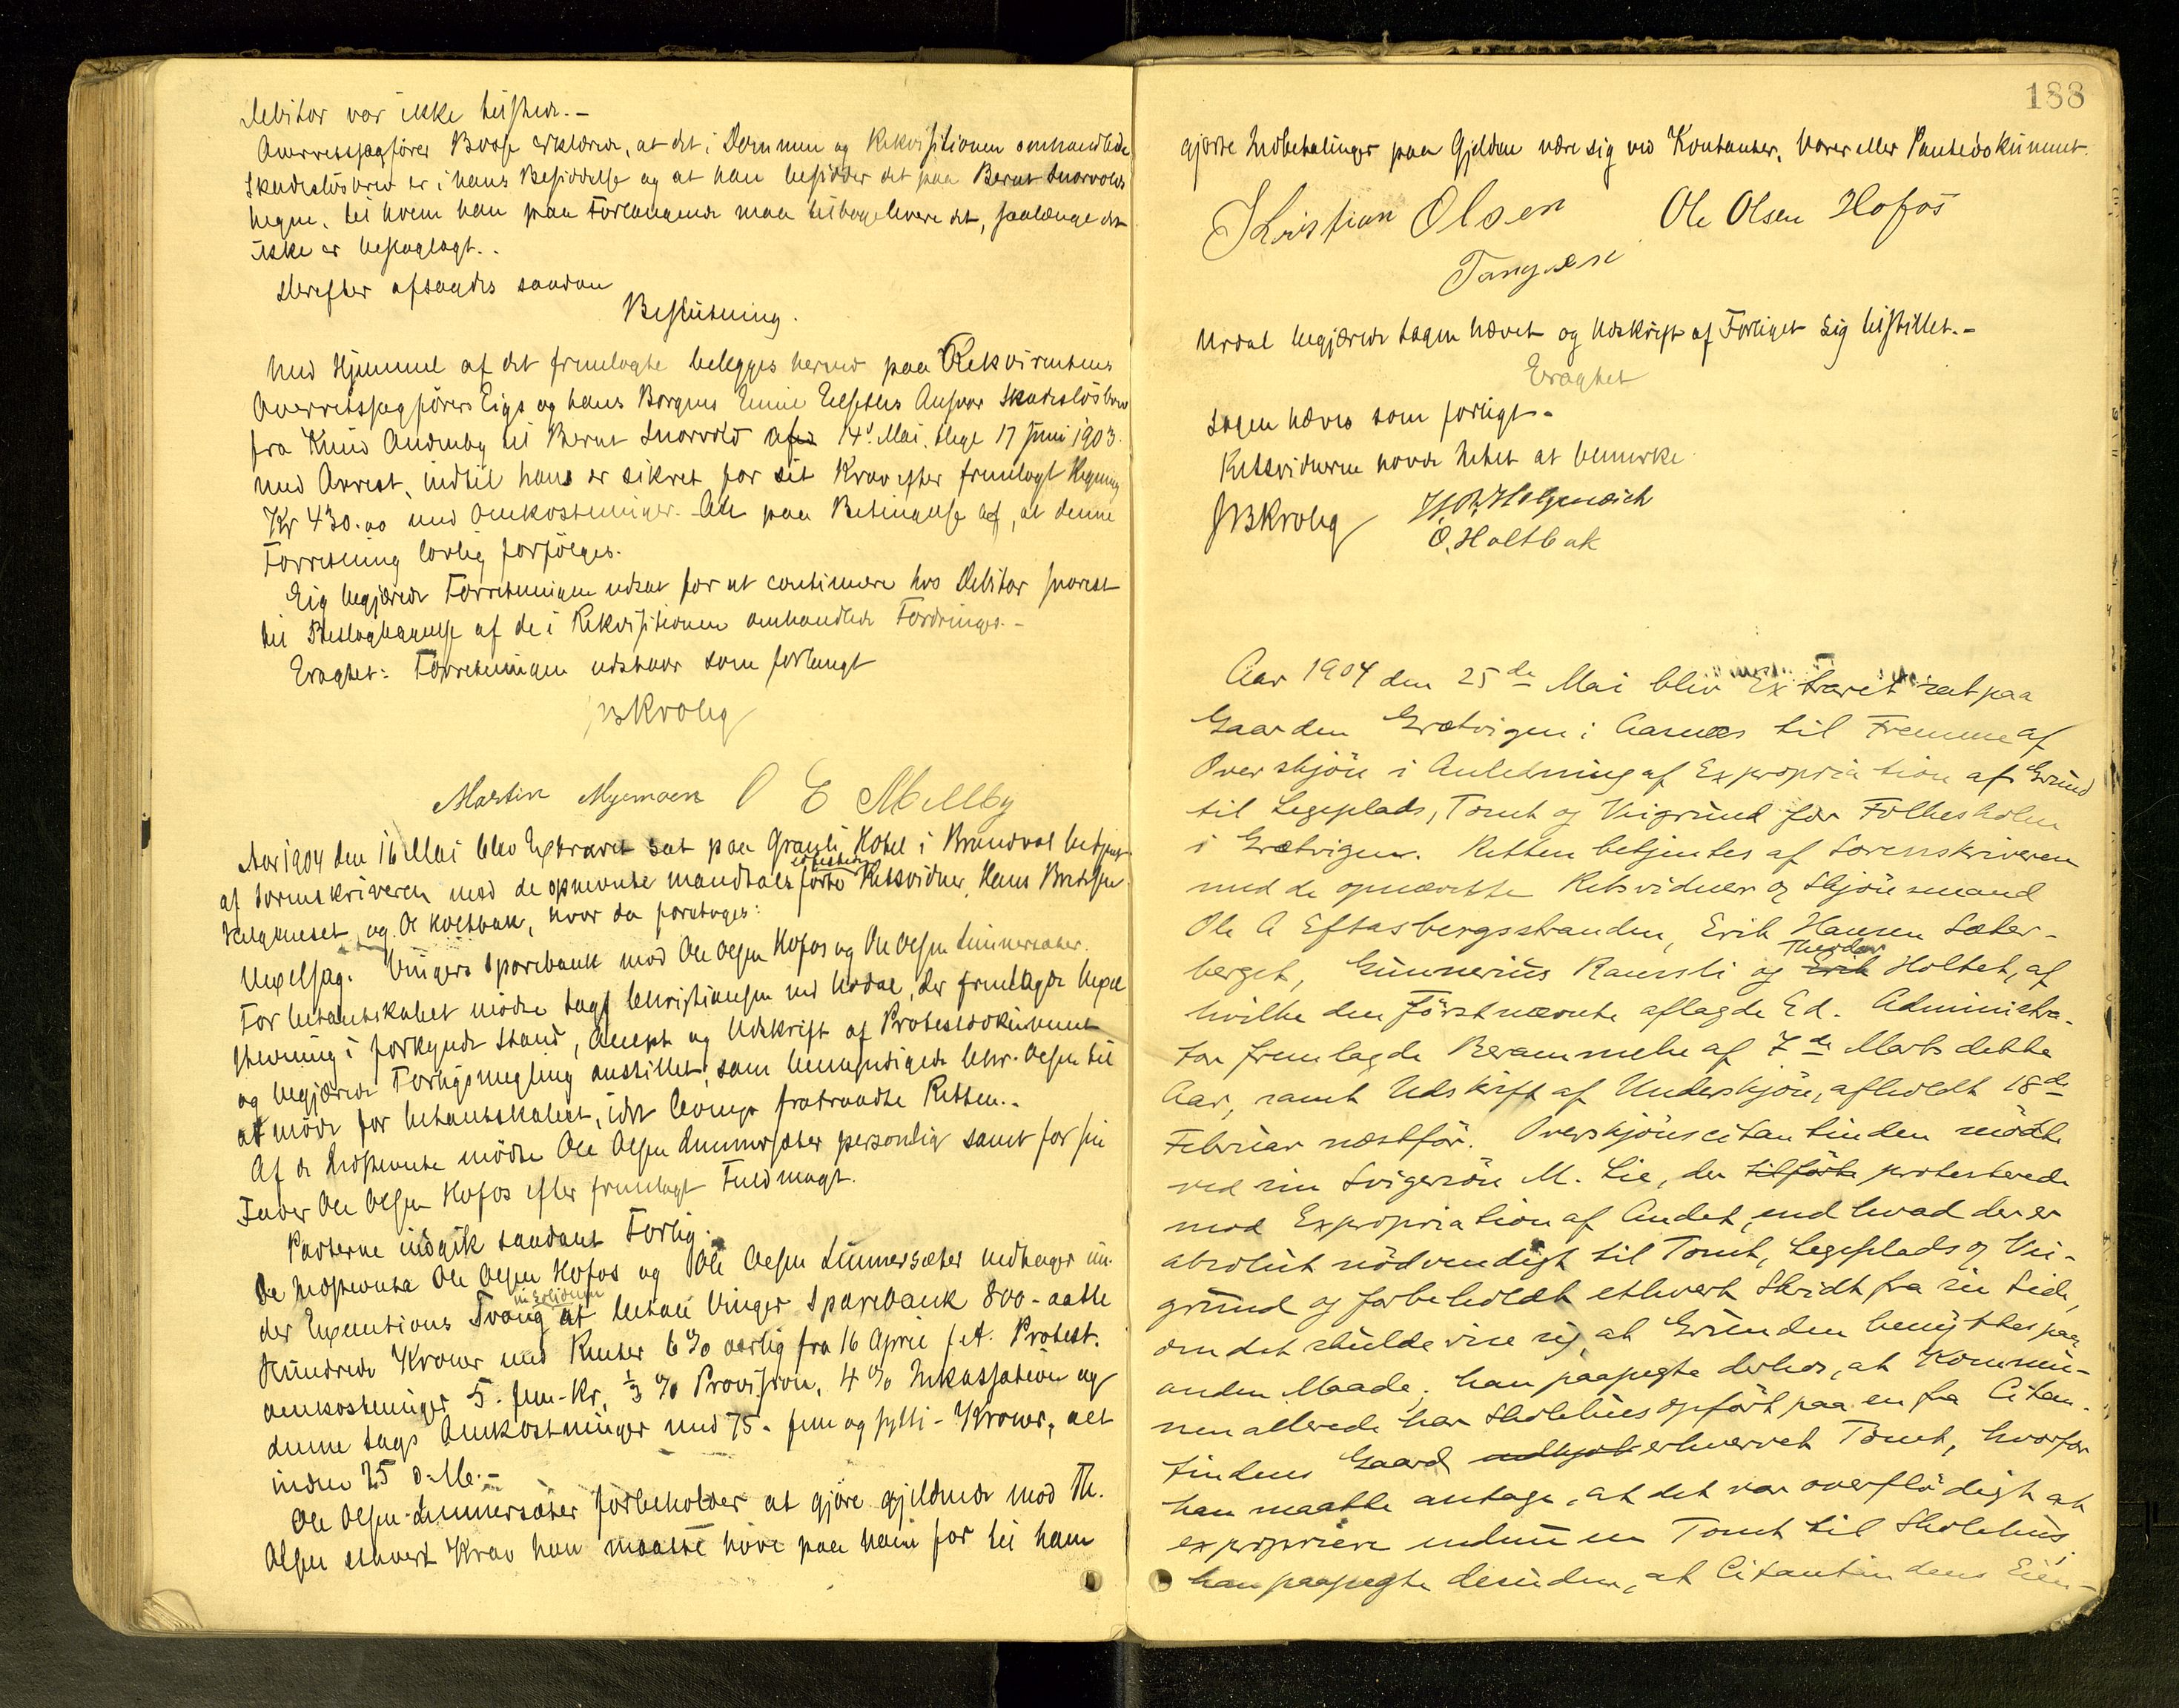 Debitor var ikke tilstede.-
Overretssagfører Boose erklærede, at det i Dommen og Rekvisitionen omhandlede
Skadesløsbrev er i hans Besiddelse og at han besidder det paa Bernt Snorvolds
Vegne, til hvem han paa Forlangende maa tilbagelevere det, saalænge det
ikke er beslaglagt..
Derefter afsagdes saadan
Beslutning.
Med Hjemmel af det fremlagte belegges herved paa Rekvirentens
Overretssagfører Eigs og hans Borgens Ansvar Skadesløsbrev
fra Knud til Bernt Snorvold 14de Mai. tlgt 17 Juni 1903.
med Arrest, indtil hans er sikret for sit Krav efter fremlagt Regning
Kr 430.00 med Omkostninger. Alt paa Betingelse af, at denne
Forretning lovlig forfølges.
Eig begjærede Forretningen udsat for at continuere hos Debitor snarest
til Beslaglæggelse af de i Rekvisitionen omhandlede Fordringer.-
Eragtet: Forretningen udstaar som forlangt
JBKrohg
Martin Myrmoen O E Mellby
Aar 1904 den 16 Mai blev Extraret sat paa Granli Hotel i Brandval betjent
af Sorenskriveren med de opnevnte mandtals førte edfæstede Retsvidner, Hans
og O Holtbak, hvor da foretoges:
Vexelsag. Vingers Sparebank mod Ole Olsen Hofos og Ole Olsen Linnersæter.
For Citantskabet mødte Sagf Christiansen ved Urdal, der fremlagde Vexel
stevning i forkyndt Stand, Accept og Udskrift af Protestdokument
og begjærede Forligsmegling anstillet, som bemyndigede Chr. Olsen til
at møde for Citantskabet, idet fratraadte Retten..
Af de Indstevnte mødte Ole Olsen Linnersæter personlig samt for sin
Fader Ole Olsen Hofos efter fremlagt Fuldmagt.
Parterne indgik saadant Forlig:
De Indstevnte Ole Olsen Hofos og Ole Olsen Linnersæter vedtager un-
der Executions Tvang in solidum at betale Vinger Sparebank 800 - aatte
Hundrede Kroner med Renter 6 % aarlig fra 16 April f.A. Protest.
omkostninger 5. fem-Kr, 1/3 % Provision, 4 % Inkassation og
denne Sags Omkostninger med 75 - fem og sytti - Kroner, alt
inden 25 d. M.-
Ole Olsen Linnersæter forbeholder at gjøre gjeldende mod Th.
Olsen ethvert Krav han maatte have paa ham for til ham
188
gjorte Indbetalinger paa Gjelden være sig ved Kontanter, Varer eller Pantedokument.
Kristian Olsen Ole Olsen Hofos
Tangnæse
Urdal begjærede Sagen hævet og Udskrift af Forliget sig tilstillet.-
Eragtet
Sagen hæves som forligt.
Retsvidnerne havde Intet at bemerke
JBKrohg
O. Holtbak
Aar 1904 den 25de Mai blev Extraret sat paa
Gaarden Grætvigen i Aasnes til Fremme af
Overskjøn i Anledning af Expropriation af Grund
til Legeplads, Tomt og Veigrund for Folkeskolen
i Grætvigen. Retten betjentes af Sorenskriveren
med de opnævnte Retsvidner og Skjønsmænd
Ole A Eftasbergsstranden, Erik Hansen Sæter-
berget, Gunnerius Ramsli og Erik Theodor Holtet, af
hvilke den Førstnævnte aflagde Ed. Administra-
tor fremlagde Berammelse af 7de Marts dette
Aar, samt Udskrift af Underskjøn, afholdt 18de
Februar næstfør. Overskjønscitantinden mødte
ved sin Svigersøn M. Lie, der tilførte protesterede
mod Expropriation af Andet, end hvad der er
absolut nødvendigt til Tomt, Legeplads og Vei-
grund og forbeholdt ethvert Skridt fra sin Side,
om det skulde vise sig, at Grunden benyttes paa
anden Maade; han paapegte derhos, at Kommu-
nen allerede har Skolehus opført paa en fra Citan-
tindens Gaard erhvervet Tomt, hvorfor
han maatte antage, at det var overflødigt at
expropriere endnu en Tomt til Skolehus,
han paapegte desuden, at Citantindens Eien-